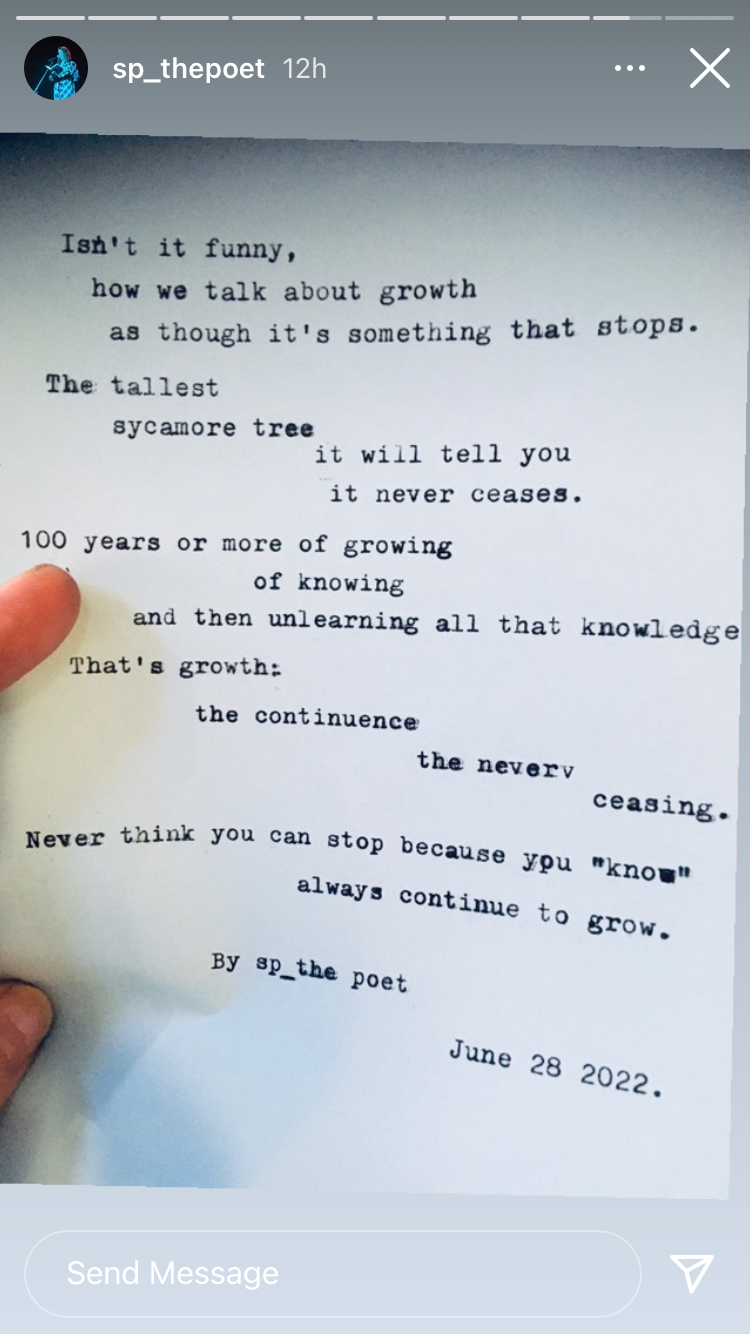 sp_thepoet 12h
Isn't it funny,
how we talk about growth
as though it's something that stops.
The tallest
sycamore tree
it will tell you
it never ceases.
100 years or more of growing
of knowing
and then unlearning all that knowledge
That's growth:
the continuence
the neverv
ceasing.
Never think you can stop because ypu "know"
always continue to grow.
By sp_the poet
June 28 2022.
Send Message